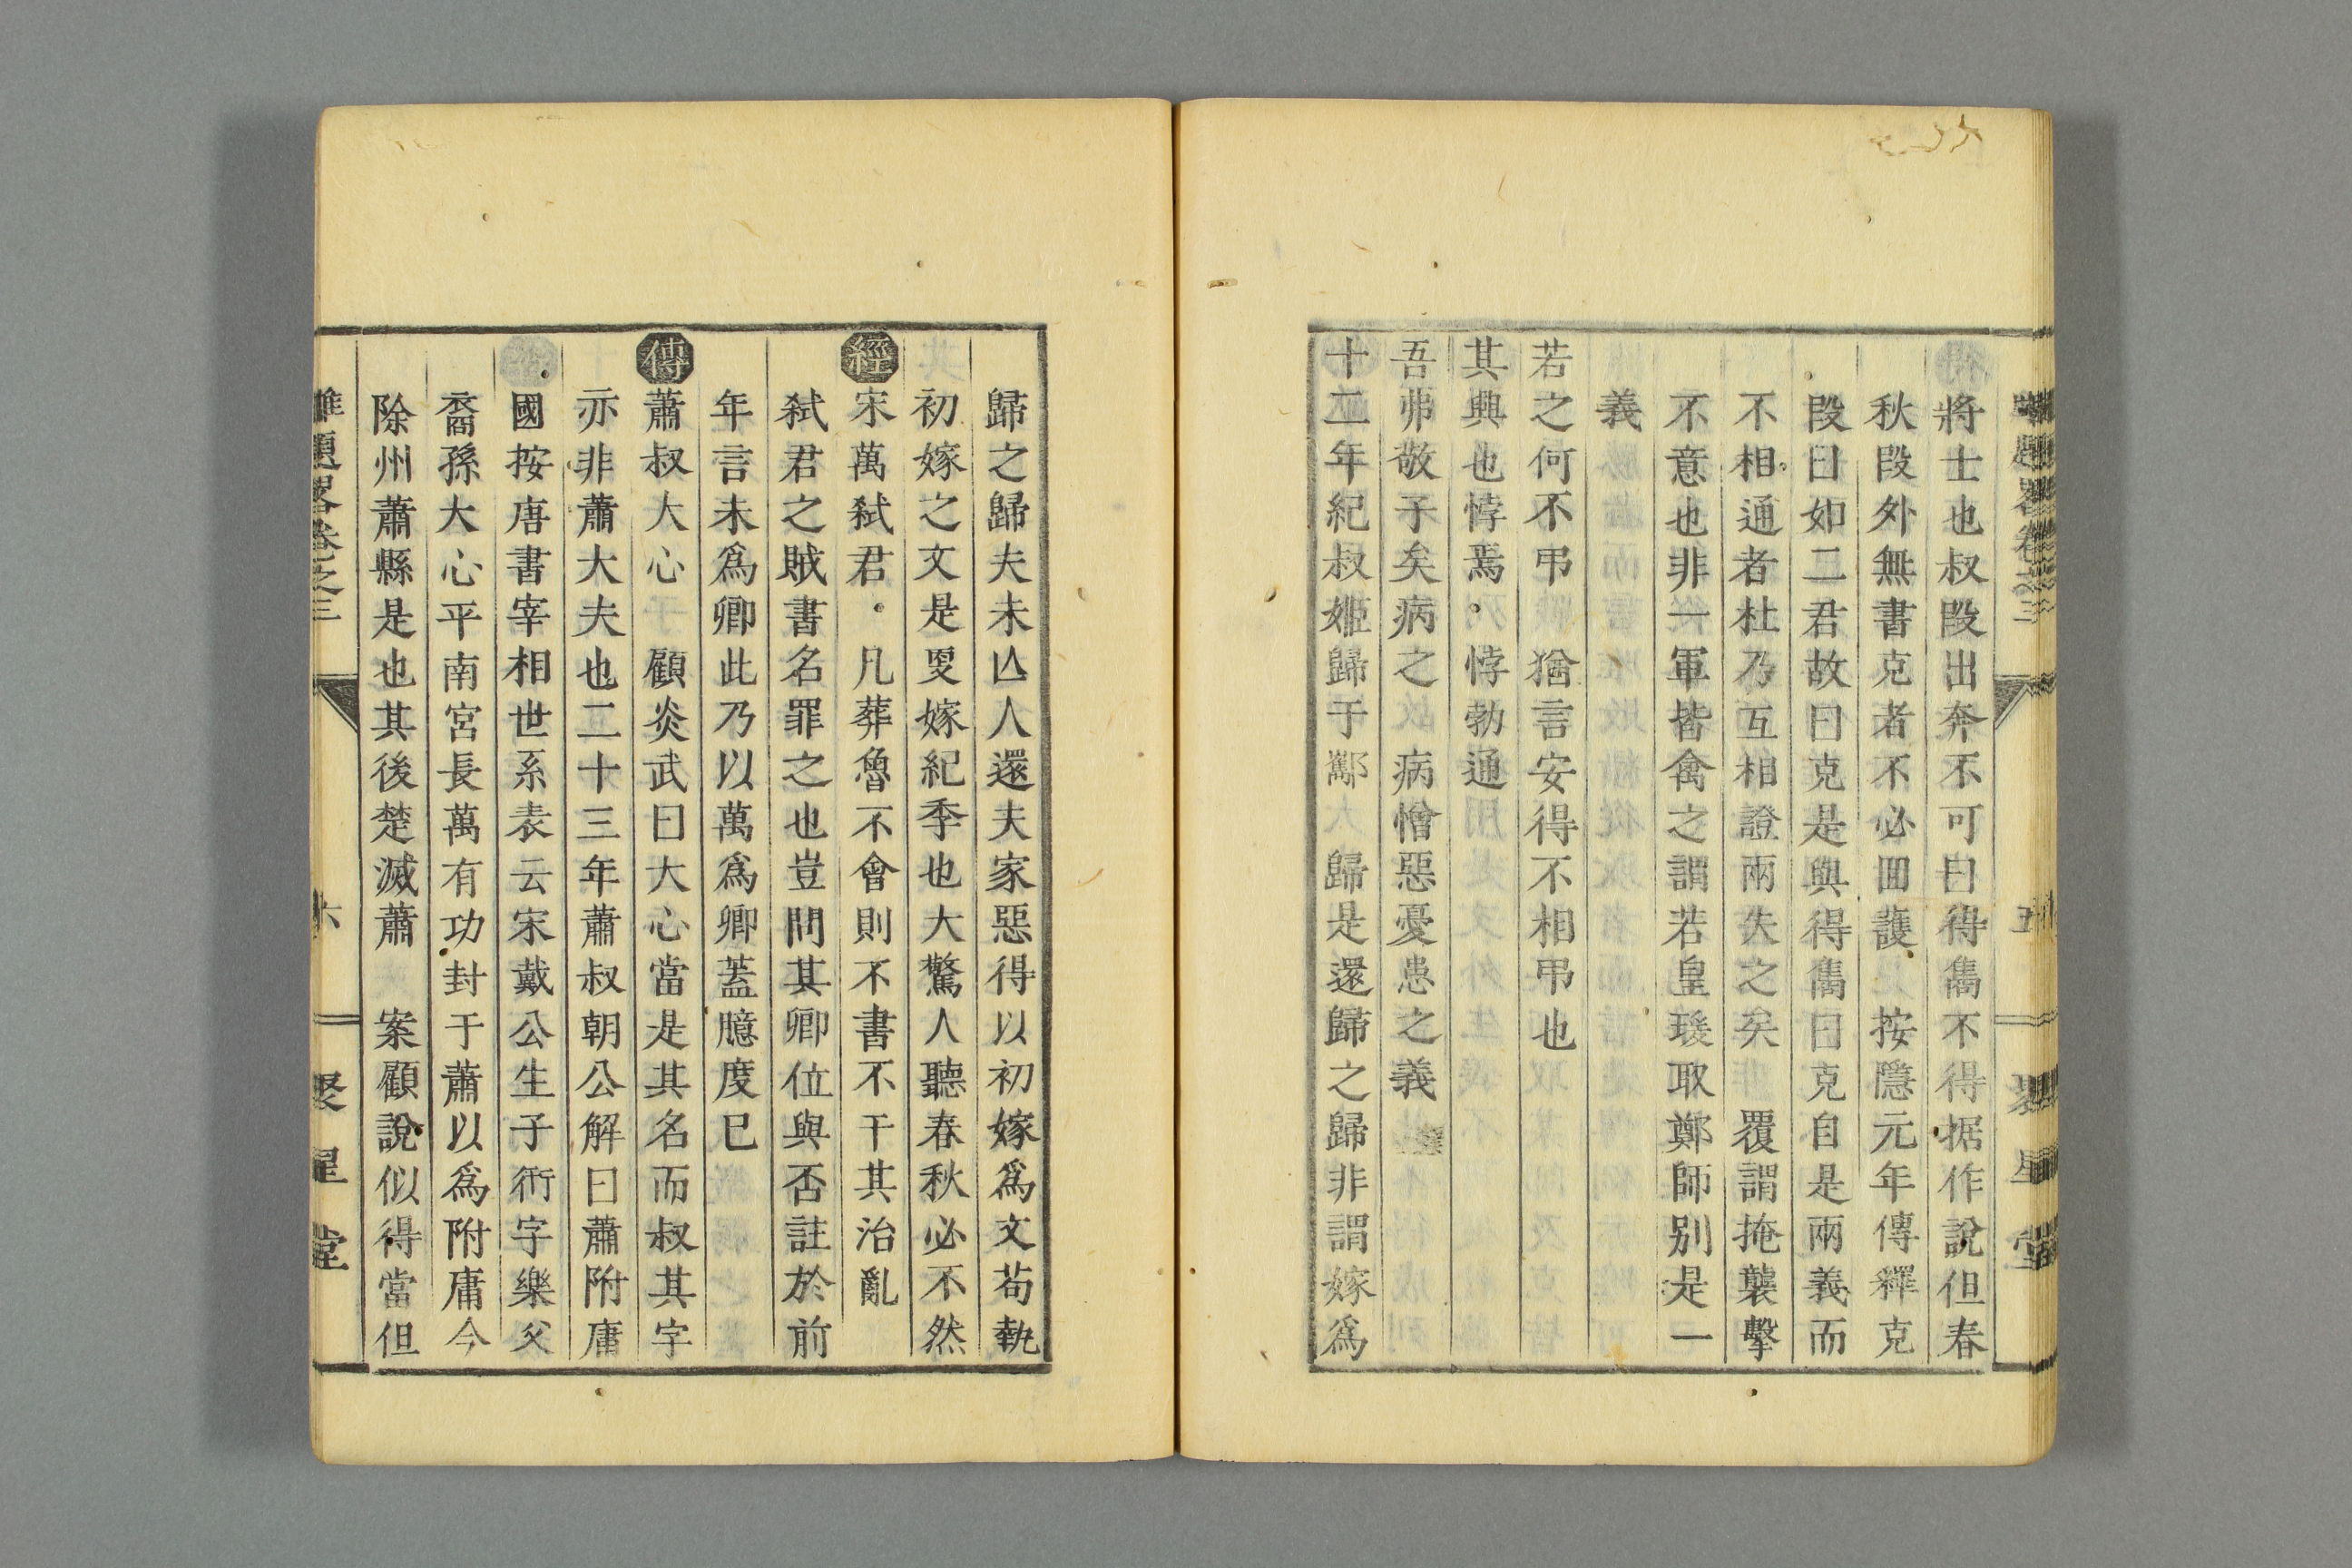 將士也叔段出奔不可曰得雋不得据作說但春
秋段外無書克者不必回護　按隱元年傳釋克
段曰如二君故曰克是與得雋曰克自是兩義而
不相通者杜乃互相證兩失之矣　覆謂掩襲擊
不意也非一軍皆禽之謂若皇瑗取鄭師别是一
義
若之何不弔　猶言安得不相弔也
其興也悖焉　悖勃通
吾弗敬子矣病之　病憎惡憂患之義
十二年紀叔姬歸于酅　歸是還歸之歸非謂嫁爲
歸之歸夫未亾人還夫家惡得以初嫁爲文苟執
初嫁之文是叓嫁紀季也大驚人聽春秋必不然
經宋萬弑君　凡葬魯不會則不書不干其治亂
弑君之賊書名罪之也豈問其卿位與否註於前
年言未爲卿此乃以萬爲卿蓋臆度已
傳蕭叔大心　顧炎武曰大心當是其名而叔其字
亦非蕭大夫也二十三年蕭叔朝公解曰蕭附庸
國按唐書宰相世系表云宋戴公生子衎字樂父
裔孫大心平南宮長萬有功封于蕭以爲附庸今
除州蕭縣是也其後楚滅蕭　案顧說似得當但
雕題畧卷之三　六　聚星堂